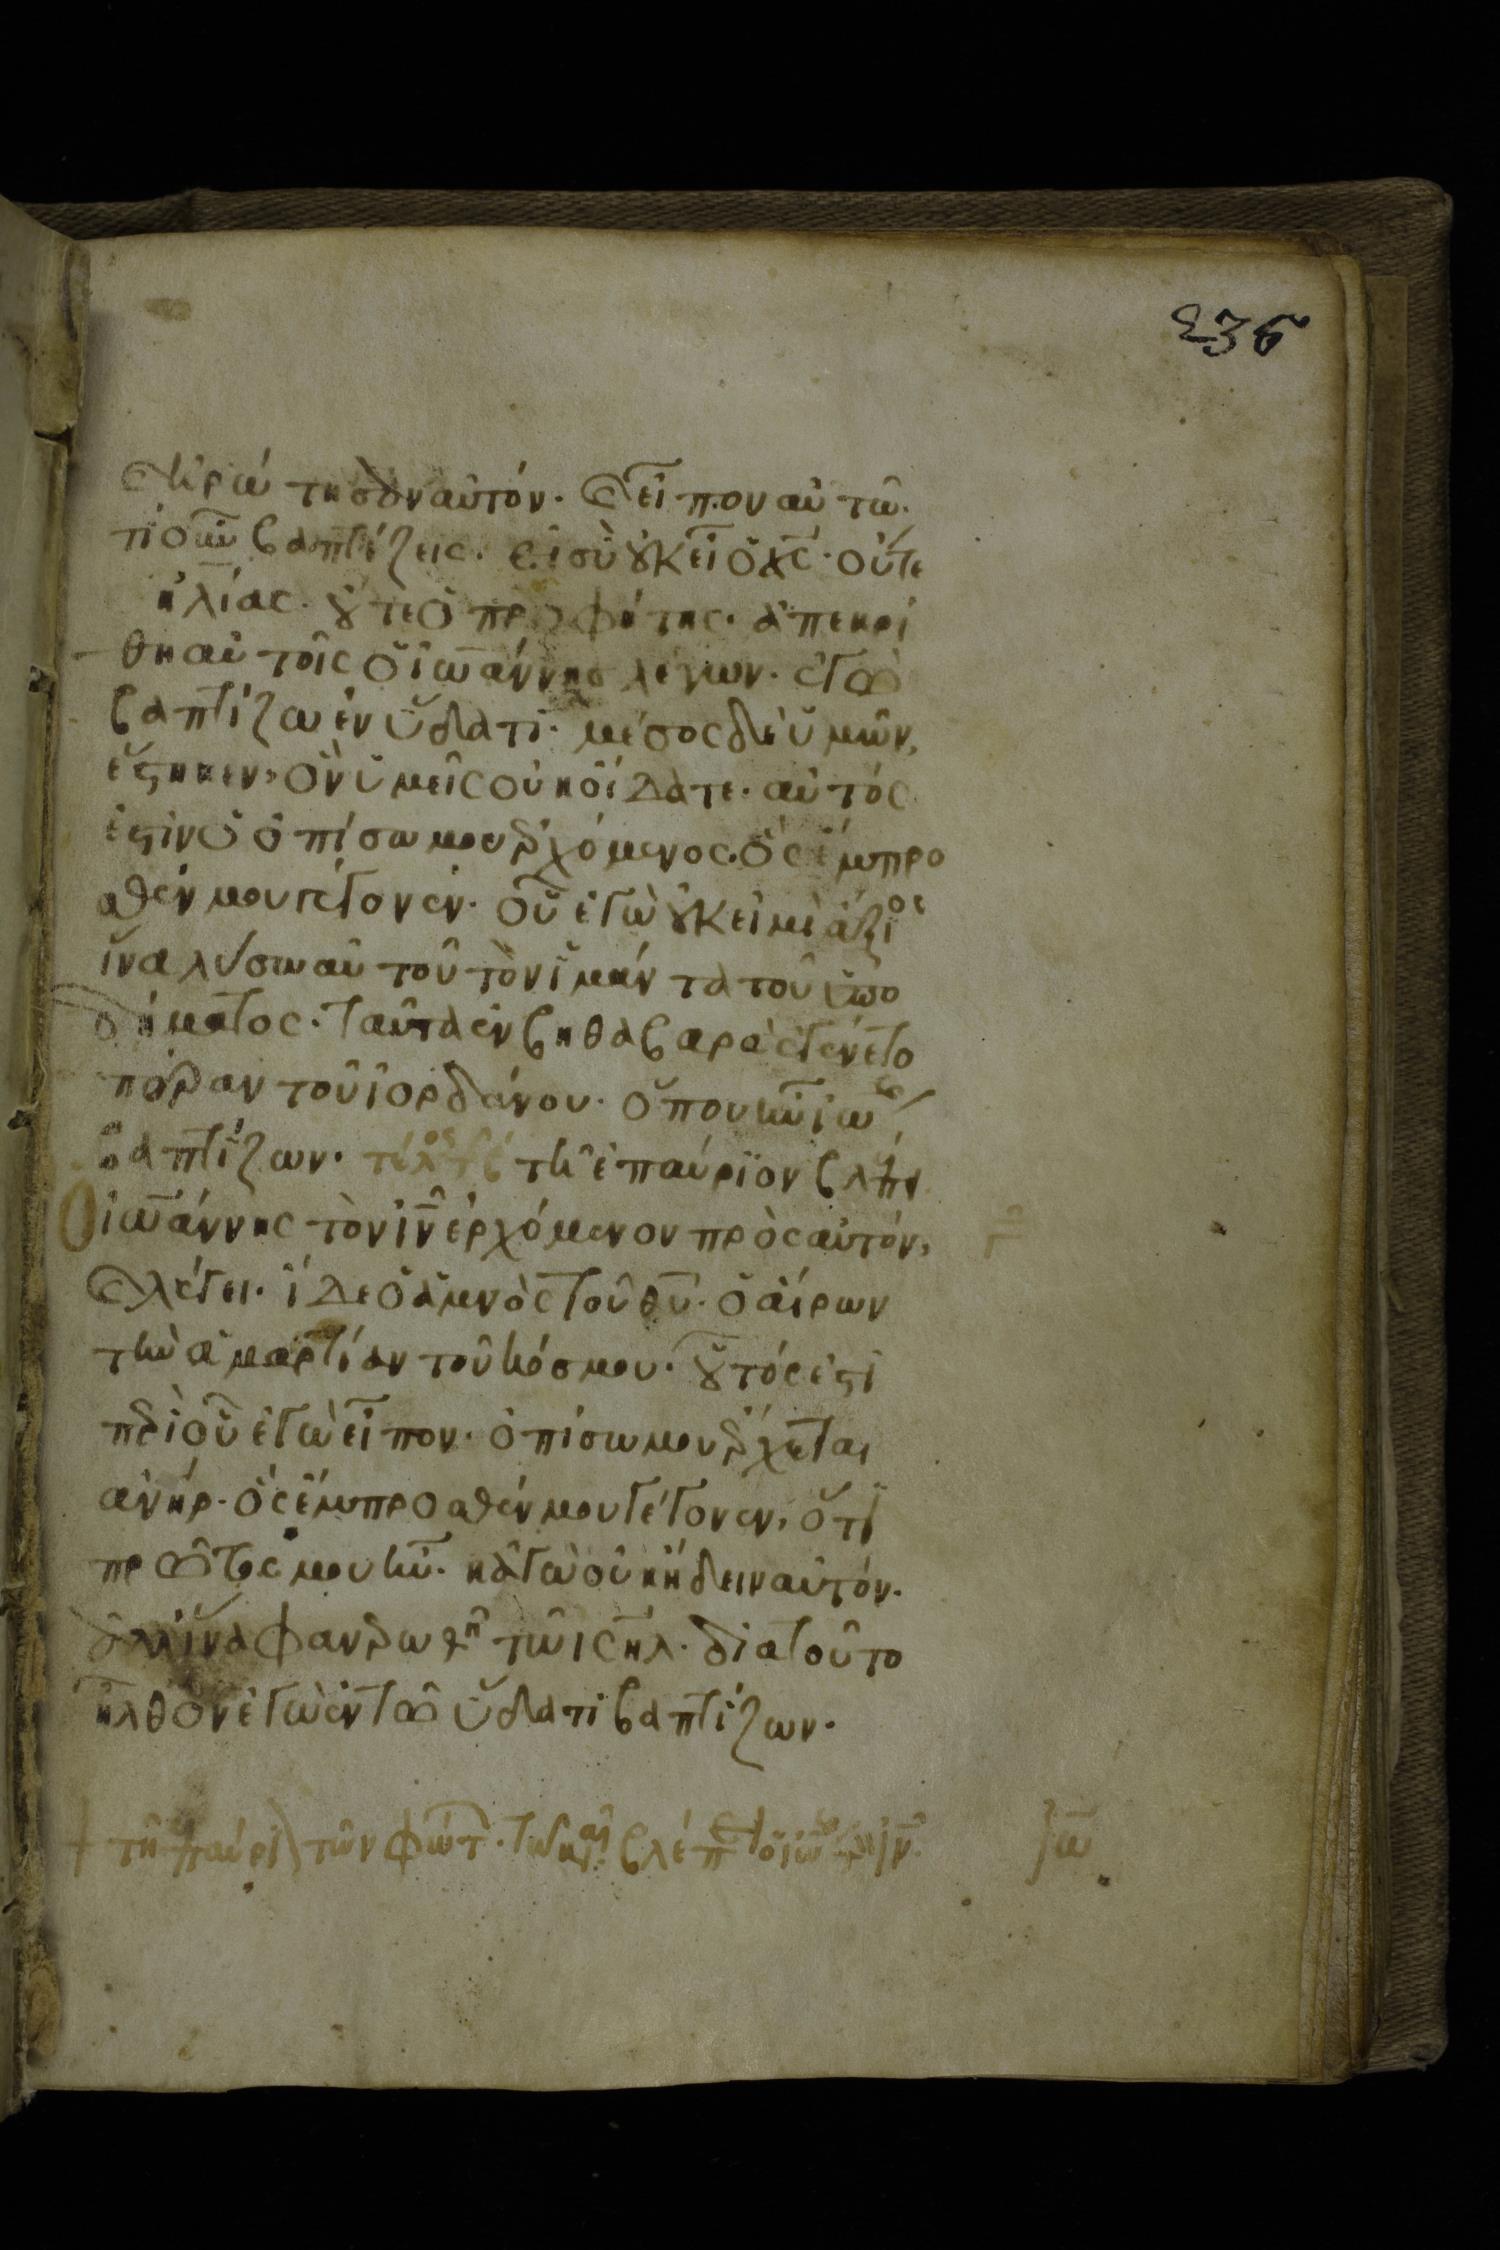 236
καὶ ἠρώτησαν αὐτόν. καὶ εἶπον αὐτῶ.
τί οὖν βαπτίζεις. εἰ σὺ οὐκ εἶ ὁ χς. οὔτε
ἠλίας. οὔτε ὁ προφήτης. ἀπεκρί
θη αὐτοῖς ὁ ἰωάννης λέγων. ἐγὼ
βαπτίζω ἐν ὕδατι. μέσος δὲ ὑμῶν,
ἕστηκεν, ὃν ὑμεῖς οὐκ οἴδατε. αὐτός
ἐστιν ὁ ὀπίσω μου ἐρχόμενος. ὃς ἔμπρο
σθέν μου γέγονεν. οὗ ἐγὼ οὐκ εἰμὶ ἄξιος
ἵνα λύσω αὐτοῦ τὸν ἱμάντα τοῦ ὑπο
δήματος. ταῦτα ἐν βηθαβαρᾶ ἐγένετο
πέραν τοῦ ἰορδάνου. ὅπου ἦν ἰω
βαπτίζων. τέλος τῆ ἐπαύριον βλέπει
ὁ ἰωάννης τὸν ιν ἐρχόμενον πρὸς αὐτόν,
καὶ λέγει. ἴδε ὁ ἀμνὸς τοῦ θυ. ὁ αἴρων
τὴν ἁμαρτίαν τοῦ κόσμου. οὗτός ἐστι
περὶ οὗ ἐγὼ εἶπον. ὀπίσω μου ἔρχεται
ἀνήρ. ὃς ἔμπροσθέν μου γέγονεν, ὅτι
πρῶτός μου ἦν. κἀγὼ οὐκ ἤδειν αὐτόν.
ἀλλ' ἵνα φανερωθῆ τῶ ιηλ. διὰ τοῦτο
ἦλθον ἐγὼ ἐν τῶ ὕδατι βαπτίζων.
+ τῆ ἐπαύρι τῶν φώτ. τῶ καιρῶ βλέπει ὁ ἰω τὸν ιν
ἰω